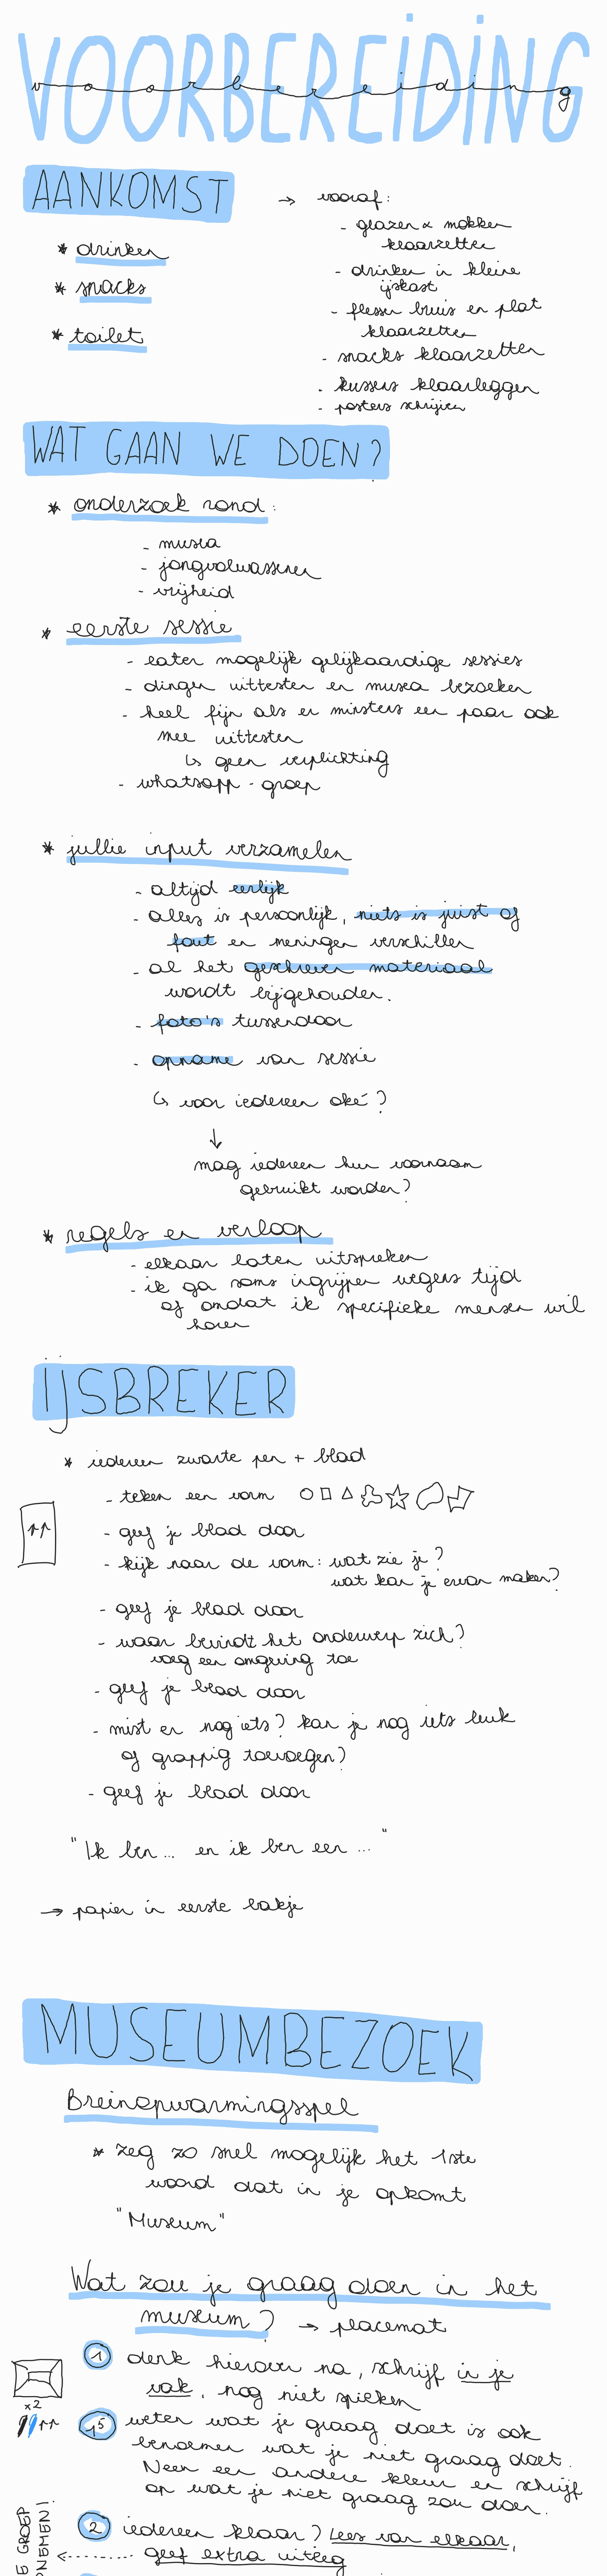 VOORBEREIDING
voorbereiding
AANKOMST
* drinken
* snacks
* toilet
→ vooraf:
- glazen & mokken
klaarzetten
- drinken in kleine
ijskast
- flessen bruis en plat
klaarzetten
- snacks klaarzetten
- kussens klaarleggen
- posters schrijven
WAT GAAN WE DOEN?
* onderzoek rond:
- musea
- jongvolwassenen
- vrijheid
* eerste sessie
- later mogelijk gelijkaardige sessies
- dingen uittesten en musea bezoeken
- heel fijn als er minstens een paar ook
mee uittesten
↳ geen verplichting
- whatsapp-groep
* jullie input verzamelen
- altijd eerlijk
- alles is persoonlijk, niets is juist of
fout en meningen verschillen
- al het geschreven materiaal
wordt bijgehouden.
- foto's tussendoor
- opname van sessie
↳ voor iedereen oké?
↓
mag iedereen hun voornaam
gebruikt worden?
* regels en verloop
- elkaar laten uitspreken
- ik ga soms ingrijpen wegens tijd
of omdat ik specifieke mensen wil
horen
IJSBREKER
* iedereen zwarte pen + blad
- teken een vorm
- geef je blad door
- kijk naar de vorm: wat zie je?
wat kan je ervan maken?
- geef je blad door
- waar bevindt het onderwerp zich?
voeg een omgeving toe
- geef je blad door
- mist er nog iets? kan je nog iets leuk
of grappig toevoegen?
- geef je blad door
"Ik ben... en ik ben een ..."
→ papier in eerste bakje
MUSEUMBEZOEK
Breinopwarmingsspel
* zeg zo snel mogelijk het 1ste
woord dat in je opkomt
"Museum"
Wat zou je graag doen in het
museum? → placemat
1 denk hierover na, schrijf in je
vak, nog niet spieken
x2
1,5 weten wat je graag doet is ook
benoemen wat je niet graag doet.
Neem een andere kleur en schrijf
op wat je niet graag zou doen.
2 iedereen klaar? Lees van elkaar,
geef extra uitleg
E GROEP
PNEMEN!